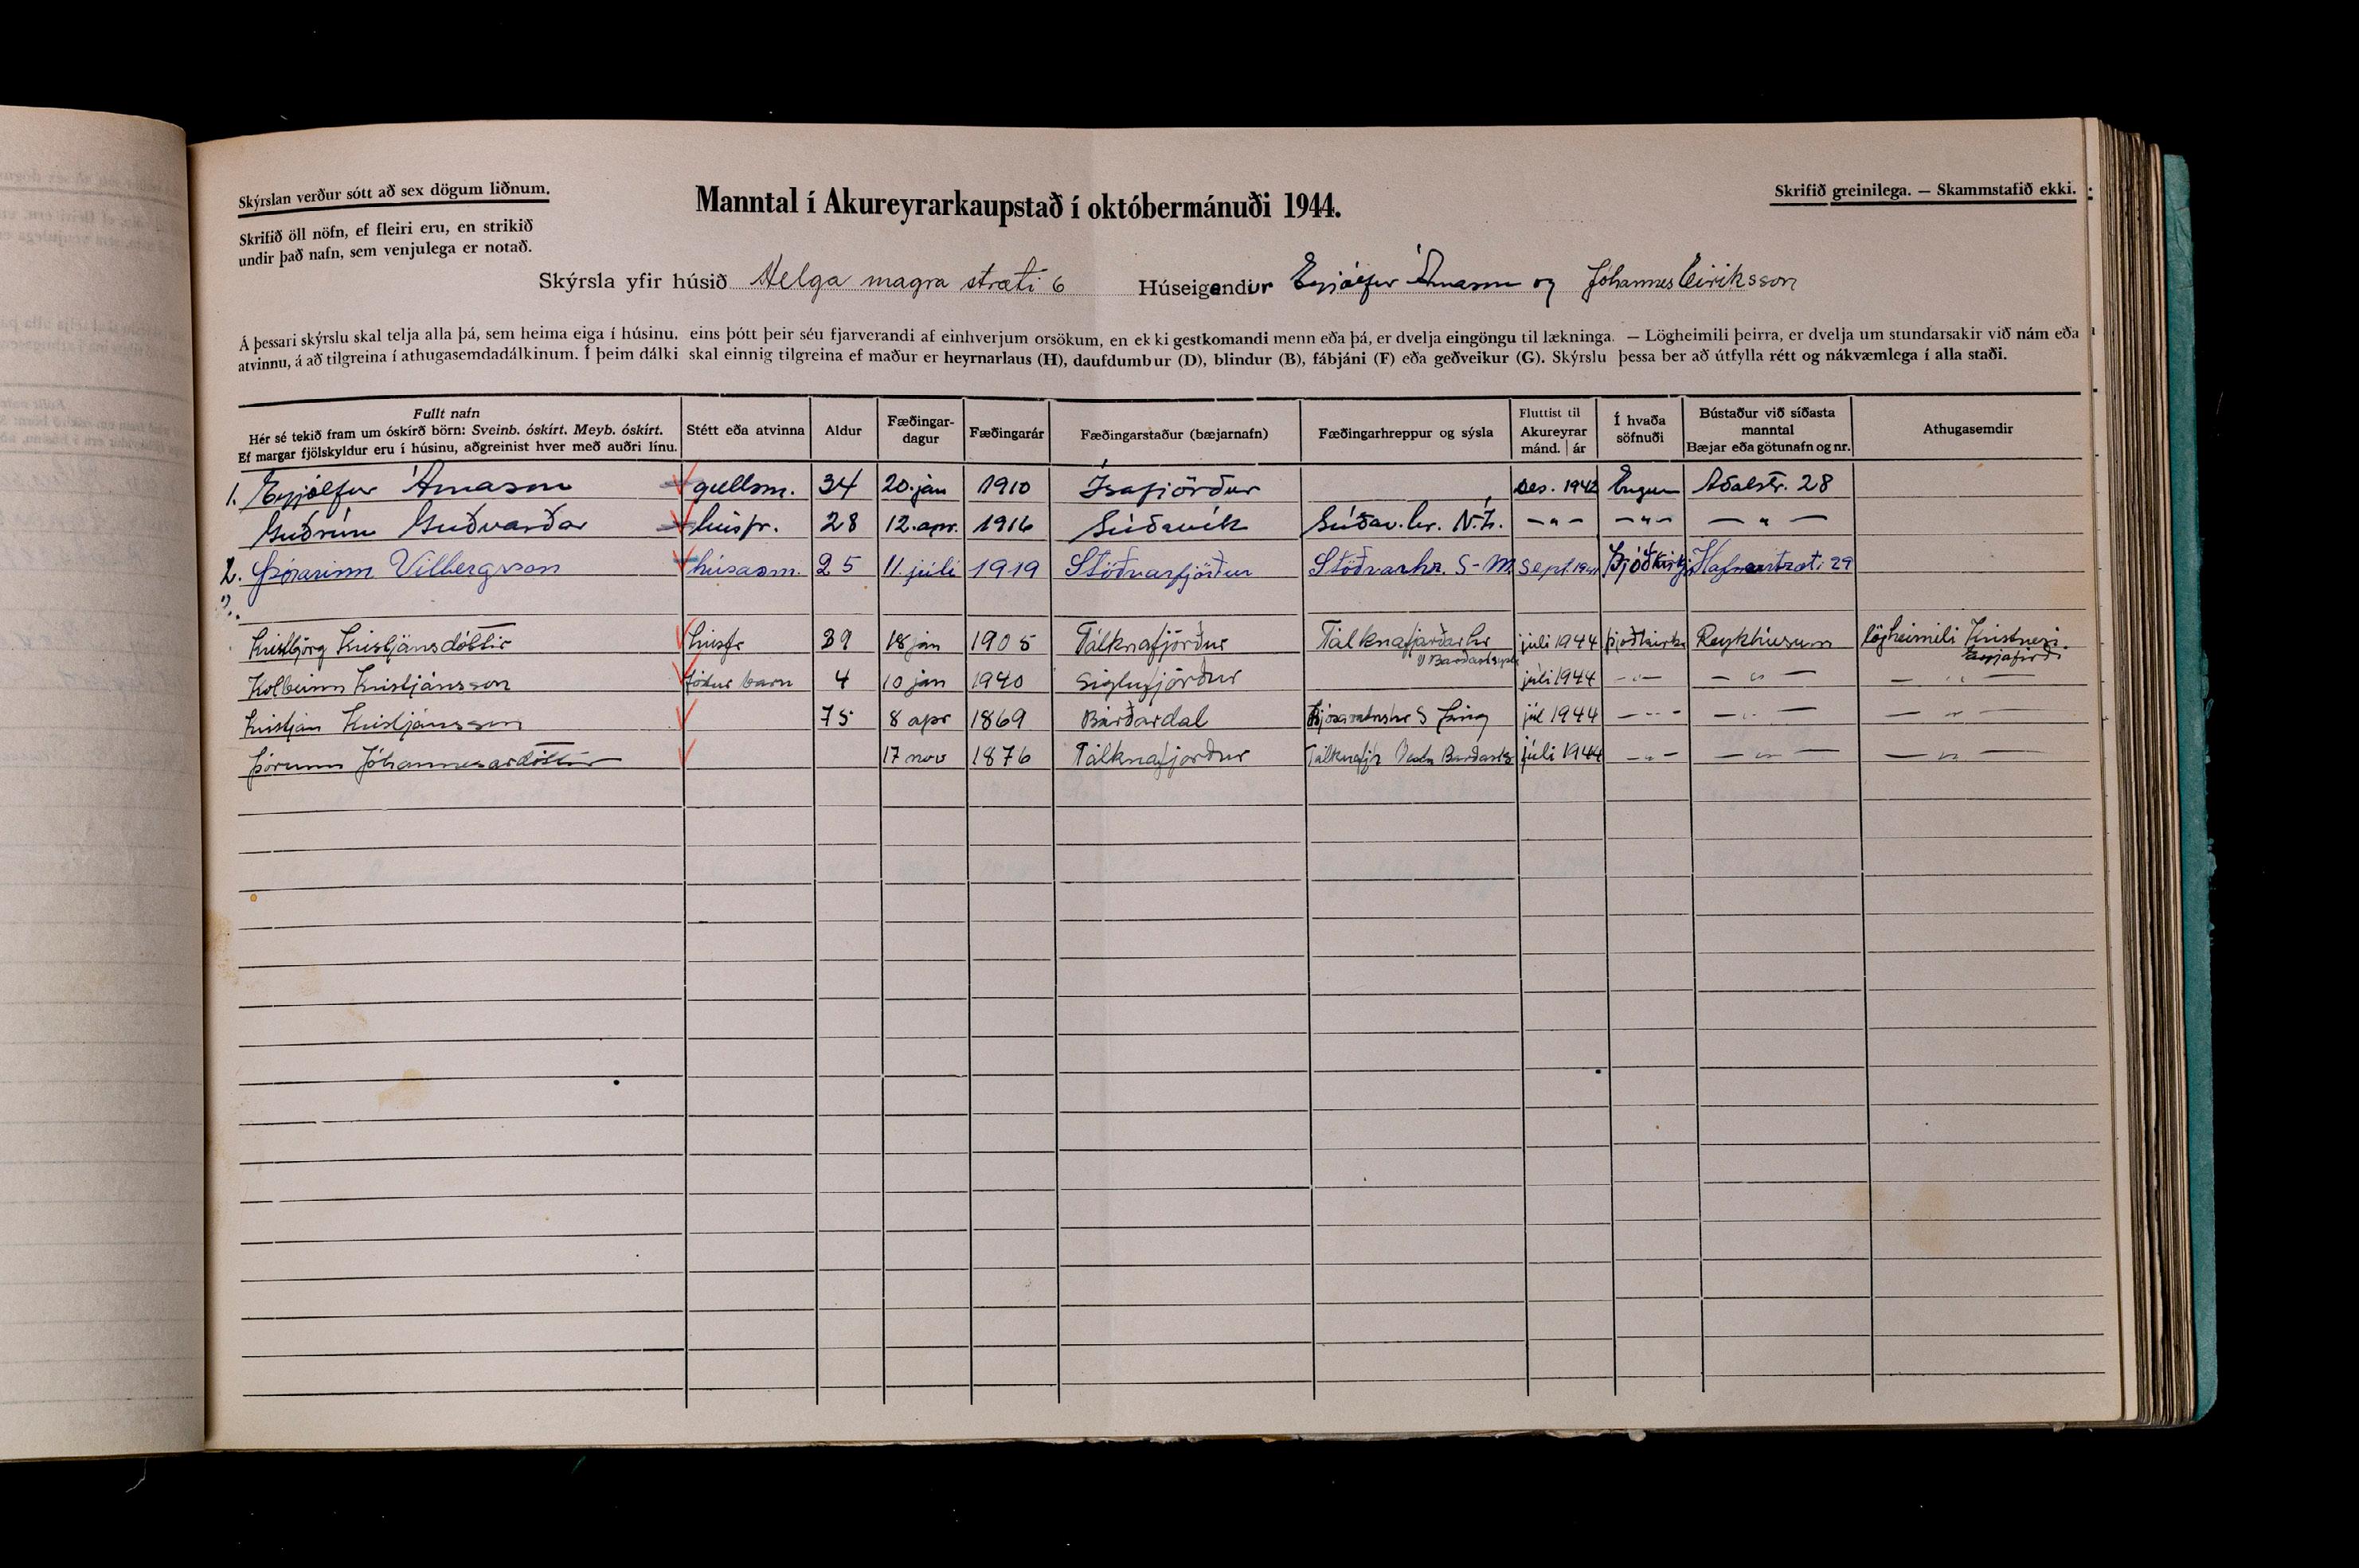 Skýrslan verður sótt að sex dögum liðnum.
Skrifið öll nöfn, ef fleiri eru, en strikið
undir það nafn, sem venjulega er notað.
Manntal í Akureyrarkaupstað í októbermánuði 1944.
Skrifið greinilega. — Skammstafið ekki.
Skýrsla yfir húsið Helga magra stræti 6 Húseigendur Eyjólfur Árnason og Jóhannes Eiríksson
Á þessari skýrslu skal telja alla þá, sem heima eiga í húsinu, eins þótt þeir séu fjarverandi af einhverjum orsökum, en ekki gestkomandi menn eða þá, er dvelja eingöngu til lækninga. — Lögheimili þeirra, er dvelja um stundarsakir við nám eða
atvinnu, á að tilgreina í athugasemdadálkinum. Í þeim dálki skal einnig tilgreina ef maður er heyrnarlaus (H), daufdumbur (D), blindur (B), fábjáni (F) eða geðveikur (G). Skýrslu þessa ber að útfylla rétt og nákvæmlega í alla staði.
Fullt nafn
Hér sé tekið fram um óskírð börn: Sveinb. óskírt. Meyb. óskírt.
Ef margar fjölskyldur eru í húsinu, aðgreinist hver með auðri línu.
Stétt eða atvinna
Aldur
Fæðingar-
dagur
Fæðingarár
Fæðingarstaður (bæjarnafn)
Fæðingarhreppur og sýsla
Fluttist til
Akureyrar
mánd. | ár
Í hvaða
söfnuði
Bústaður við síðasta
manntal
Bæjar eða götunafn og nr.
Athugasemdir
1. Eyjólfur Árnason gullsm. 34 20. jan 1910 Ísafjörður Des. 1942 Engum Aðalstr. 28
Guðrún Guðvarðar húsfr. 28 12. apr. 1916 Súðavík Súðav.hr. N.Ís. —„— —„— — „ —
2. Þórarinn Vilbergsson húsasm. 25 11. júlí 1919 Stöðvarfjörður Stöðvarhr. S-M Sept. Þjóðkirkj Hafnarstræti 29
Kristbjörg Kristjánsdóttir húsfr 39 18 jan 1905 Tálknafjörður Tálknafjarðarhr júlí 1944 þjóðkirkj Reykhúsum lögheimili Kristnesi
V Barðastrs Eyjafirði
Kolbeinn Kristjánsson fóstur barn 4 10 jan 1940 Siglufjörður júlí 1944 —„— — „ — — „ —
Kristján Kristjánsson 75 8 apr 1869 Bárðardal Ljósavatnshr S Þing júl 1944 —„— — „ — — „ —
Þórunn Jóhannesardóttir 17 nov 1876 Tálknafjörður Tálknafjr Barðastr júlí 1944 —„— — „ — — „ —